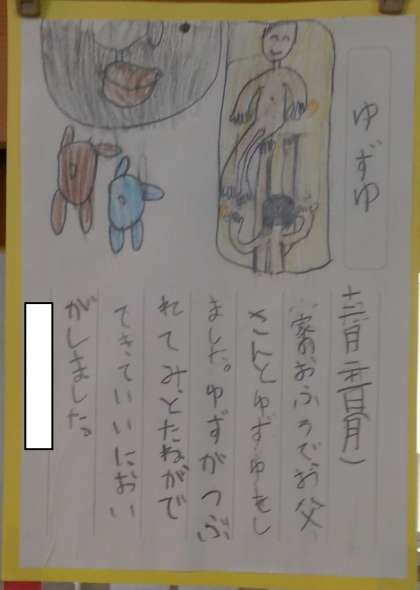 ゆずゆ
家のおふろでお父
さんとゆずゆをし
ました。ゆずがつぶ
れてみとたねがで
てきていいにおい
がしました。